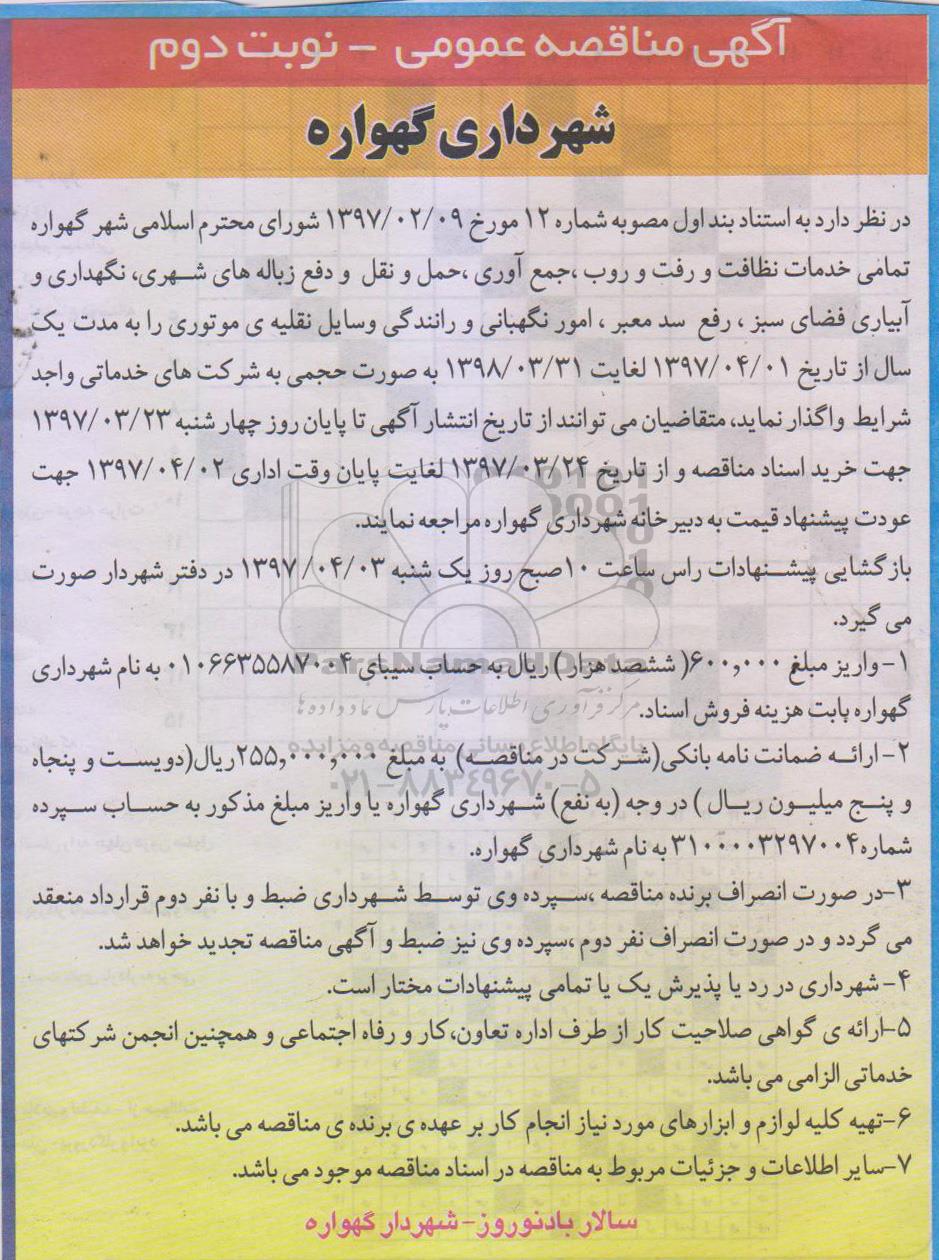 آگهی مناقصه عمومی - نوبت دوم
شهرداری گهواره
در نظر دارد به استناد بند اول مصوبه شماره ۱۲ مورخ ۱۳۹۷/۰۲/۰۹ شورای محترم اسلامی شهر گهواره
تمامی خدمات نظافت و رفت و روب ،جمع آوری ،حمل و نقل و دفع زباله های شهری، نگهداری و
آبیاری فضای سبز ، رفع سد معبر ، امور نگهبانی و رانندگی وسایل نقلیه ی موتوری را به مدت یک
سال از تاریخ ۱۳۹۷/۰۴/۰۱ لغایت ۱۳۹۸/۰۳/۳۱ به صورت حجمی به شرکت های خدماتی واجد
شرایط واگذار نماید، متقاضیان می توانند از تاریخ انتشار آگهی تا پایان روز چهار شنبه ۱۳۹۷/۰۳/۲۳
جهت خرید اسناد مناقصه و از تاریخ ۱۳۹۷/۰۳/۲۴ لغایت پایان وقت اداری ۱۳۹۷/۰۴/۰۲ جهت
عودت پیشنهاد قیمت به دبیرخانه شهرداری گهواره مراجعه نمایند.
بازگشایی پیشنهادات راس ساعت ۱۰صبح روز یک شنبه ۱۳۹۷/۰۴/۰۳ در دفتر شهردار صورت
می گیرد.
۱-واریز مبلغ ۶۰۰,۰۰۰( ششصد هزار ) ریال به حساب سیبای ۰۱۰۶۶۳۵۵۸۷۰۰۴ به نام شهرداری
گهواره بابت هزینه فروش اسناد.
۲- ارائه ضمانت نامه بانکی(شرکت در مناقصه) به مبلغ ۲۵۵,۰۰۰,۰۰۰ریال(دویست و پنجاه
و پنج میلیون ریال ) در وجه (به نفع) شهرداری گهواره یا واریز مبلغ مذکور به حساب سپرده
شماره۳۱۰۰۰۰۳۲۹۷۰۰۴ به نام شهرداری گهواره.
۳-در صورت انصراف برنده مناقصه ،سپرده وی توسط شهرداری ضبط و با نفر دوم قرارداد منعقد
می گردد و در صورت انصراف نفر دوم ،سپرده وی نیز ضبط و آگهی مناقصه تجدید خواهد شد.
۴- شهرداری در رد یا پذیرش یک یا تمامی پیشنهادات مختار است.
۵-ارائه ی گواهی صلاحیت کار از طرف اداره تعاون،کار و رفاه اجتماعی و همچنین انجمن شرکتهای
خدماتی الزامی می باشد.
۶-تهیه کلیه لوازم و ابزارهای مورد نیاز انجام کار بر عهده ی برنده ی مناقصه می باشد.
۷-سایر اطلاعات و جزئیات مربوط به مناقصه در اسناد مناقصه موجود می باشد.
سالار بادنوروز-شهردار گهواره
ParsNamadData
مرکز فرآوری اطلاعات پارس نماد داده ها
پایگاه اطلاع رسانی مناقصه و مزایده
۰۲۱-۸۸۳۴۹۶۷۰-۵